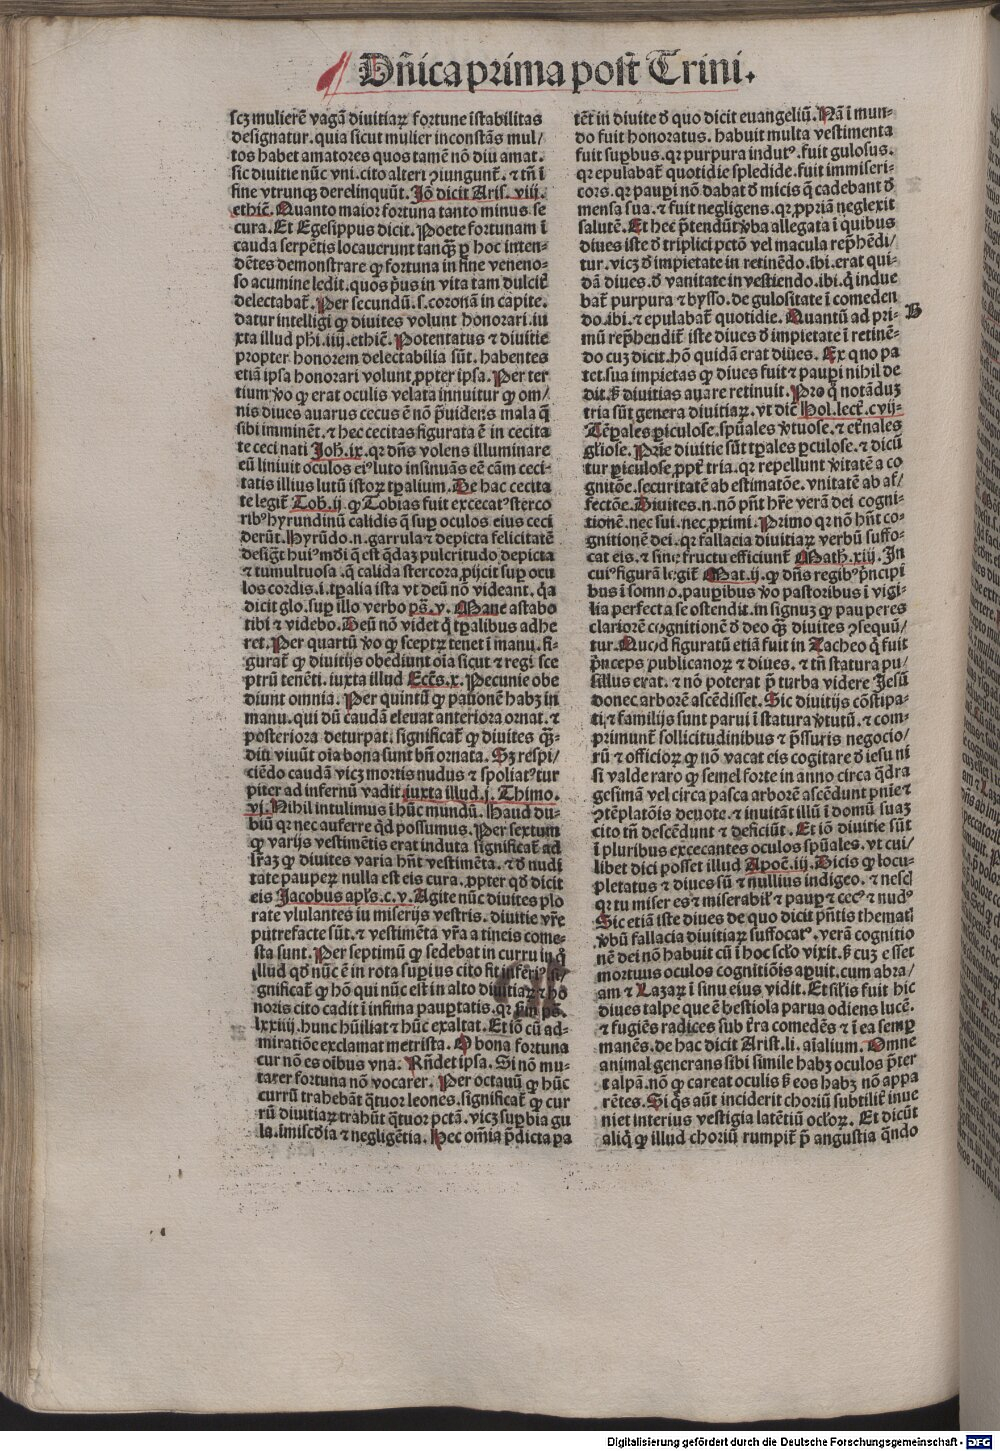 Dñica prima post Trini.
scz mulierē vagā diuitiaꝝ fortune īstabilitas
designatur. quia sicut mulier inconstās mul/
tos habet amatores quos tamē nō diu amat.
sic diuitie nūc vni. cito alteri ꝯiungunt᷑. ⁊ tñ ī
fine vtrunqꝫ derelinquūt. Jō dicit Aris. viij.
ethic̄. Quanto maior fortuna tanto minus se
cura. Et Egesippus dicit. Poete fortunam ī
cauda serpētis locauerunt tanqꝫ̄ ꝑ hoc inten-
dētes demonstrare ꝙ fortuna in fine veneno-
so acumine ledit. quos pͥus in vita tam dulciť
delectabat᷑. Per secundū. s. coronā in capite.
datur intelligi ꝙ diuites volunt honorari. iu
xta illud phi. iiij. ethic̄. Potentatus ⁊ diuitie
propter honorem delectabilia sūt. habentes
etiā ipsa honorari volunt ꝓpter ipsa. Per ter
tium ṽo ꝙ erat oculis velata innuitur ꝙ om/
nis diues auarus cecus ē nō p̄uidens mala q̄
sibi imminēt. ⁊ hec cecitas figurata ē in cecita
te ceci nati Joh̄. ix. qꝛ dñs volens illuminare
eū liniuit oculos eiꝰ luto insinuās eē cām ceci-
tatis illius lutū istoꝝ tꝑalium. De hac cecita
te legit᷑ Tob. ij. ꝙ Tobias fuit excecatꝰ sterco
ribꝰ hyrundinū calidis q̄ suꝑ oculos eius ceci
derūt. Hyrūdo. n. garrula ⁊ depicta felicitatē
desigt᷑ huiꝰ mōi q̄ est q̄daꝫ pulcritudo depicta
⁊ tumultuosa. q̄ calida stercora ꝓijcit suꝑ ocu
los cordis. i. tꝑalia ista vt deū nō videant. q̄a
dicit glo. suꝑ illo verbo ps̄. v. Mane astabo
tibi ⁊ videbo. Deū nō videt q̄ tꝑalibus adhe
ret. Per quartū ṽo ꝙ sceptꝝ tenet ī manu. fi-
gurat᷑ ꝙ diuitijs obediunt oīa sicut ⁊ regi sce
ptrū tenēti. iuxta illud Eccł̄s. x. Pecunie obe
diunt omnia. Per quintū ꝙ pauonē habꝫ in
manu. qui dū caudā eleuat anteriora ornat. ⁊
posteriora deturpat. significat᷑ ꝙ diuites qꝫ̄-
diu viuūt oīa bona sunt bñ ornata. Sꝫ respi/
ciēdo caudā vicꝫ mortis nudus ⁊ spoliatꝰ tur
piter ad infernū vadit. iuxta illud. j. Thimo.
vj. Nihil intulimus ī hūc mundū. Haud du-
biū qꝛ nec auferre q̄d possumus. Per sextum
ꝙ varijs vestimētis erat induta significat᷑ ad
lr̄aꝫ ꝙ diuites varia hñt vestimēta. ⁊ ð nudi
tate pauperꝝ nulla est eis cura. ꝓpter qð dicit
eis Jacobus apłs. c. v. Agite nūc diuites plo
rate vlulantes in miserijs vestris. diuitie vr̄e
putrefacte sūt. ⁊ vestimēta vr̄a a tineis come-
sta sunt. Per septimū ꝙ sedebat in curru in q̄
illud qð nūc ē in rota suꝑius cito fit inferiꝰ. si/
gnificat᷑ ꝙ hō qui nūc est in alto diuitiaꝝ ⁊ ho
noris cito cadit ī infima pauꝑtatis. qꝛ ẜm ps.
lxxiiij. hunc hūiliat ⁊ hūc exaltat. Et iō cū ad-
miratiōe exclamat metrista. O bona fortuna
cur nō es oībus vna. Rñdet ipsa. Si nō mu-
tarer fortuna nō vocarer. Per octauū ꝙ hūc
currū trahebāt q̄tuor leones. significat᷑ ꝙ cur
rū diuitiaꝝ trahūt q̄tuor pctā. vicꝫ suꝑbia gu
la. īmiscd̄ia ⁊ negligētia. Hec om̄ia p̄dicta pa
tēt in diuite ð quo dicit euangeliū. Nā ī mun-
do fuit honoratus. habuit multa vestimenta
fuit suꝑbus. qꝛ purpura indutꝰ. fuit gulosus.
qꝛ epulabat᷑ quotidie spledide. fuit immiseri-
cors. qꝛ pauꝑi nō dabat ð micis q̄ cadebant ð
mensa sua. ⁊ fuit negligens. qꝛ ꝓpriā neglexit
salutē. Et hec p̄tendūt ṽba allegata ī quibus
diues iste ð triplici pctō vel macula repͤhēdi/
tur. vicꝫ ð impietate in retinēdo. ibi. erat qui-
dā diues. ð vanitate in vestiendo. ibi. q̄ indue
bat᷑ purpura ⁊ bysso. de gulositate ī comeden
do. ibi. ⁊ epulabat᷑ quotidie. Quantū ad pri-
B
mū repͤhendit᷑ iste diues ð impietate ī retinē-
do cuꝫ dicit. hō quidā erat diues. Ex quo pa
tet. sua impietas ꝙ diues fuit ⁊ pauꝑi nihil de
dit. ẜꝫ diuitias auare retinuit. Pro q̄ notādūꝫ
tria sūt genera diuitiaꝝ. vt dic̄ Hol. lect̄. cvij-
Tēꝑales ꝑiculose. spūales ṽtuose. ⁊ et̄nales
gl̄iose. Pͥme diuitie sūt tꝑales ꝑculose. ⁊ dicū
tur ꝑiculose ꝓpt᷑ tria. qꝛ repellunt ṽitatē a co
gnitōe. securitatē ab estimatōe. vnitatē ab af/
fectōe. Diuites. n. nō pñt hr̄e verā dei cogni-
tionē. nec sui. nec ꝓximi. Primo qꝛ nō hñt co-
gnitionē dei. qꝛ fallacia diuitiaꝝ verbū suffo-
cat eis. ⁊ sine fructu efficiunt᷑ Math̄. xiij. In
cuiꝰ figurā legit᷑ Mat. ij. ꝙ dñs regibꝰ pͥncipi
bus ī somno. pauꝑibus ṽo pastoribus ī vigi-
lia perfecta se ostendit. in signuꝫ ꝙ pauperes
clariorē cognitionē ð deo qꝫ̄ diuites ꝯsequū/
tur. Quod figuratū etiā fuit in Zacheo q̄ fuit
pͥnceps publicanoꝝ ⁊ diues. ⁊ tñ statura pu/
sillus erat. ⁊ nō poterat p̄ turba videre Jesū
donec arborē ascēdisset. Sic diuitijs cōstipa-
ti. ⁊ familijs sunt parui ī statura ṽtutū. ⁊ com-
primunt᷑ sollicitudinibus ⁊ p̄ssuris negocio/
rū ⁊ officioꝝ ꝙ nō vacat eis cogitare ð iesu ni
si valde raro ꝙ semel forte in anno circa q̄dra
gesimā vel circa pasca arborē ascēdunt pnīe ⁊
ꝯtēplatōis deuote. ⁊ inuitāt illū ī domū suaꝫ
cito tñ descēdunt ⁊ deficiūt. Et iō diuitie sūt
ī pluribus excecantes oculos spūales. vt cui/
libet dici posset illud Apoc̄. iij. Dicis ꝙ locu-
pletatus ⁊ diues sū ⁊ nullius indigeo. ⁊ nescl
qꝛ tu miser es ⁊ miserabił ⁊ pauꝑ ⁊ cecꝰ ⁊ nudꝰ
Sic etiā iste diues de quo dicit pñtis thematꝭ
ṽbū fallacia diuitiaꝝ suffocatꝰ. verā cognitio
nē dei nō habuit cū ī hoc scl̄o vixit. ẜꝫ cuꝫ esset
mortuus oculos cognitiōis aꝑuit. cum abra/
am ⁊ Lazaꝝ ī sinu eius vidit. Et siłis fuit hic
diues talpe que ē bestiola parua odiens lucē.
⁊ fugiēs radices sub t̄ra comedēs ⁊ ī ea semꝑ
manēs. de hac dicit Arist. li. aīalium. Omne
animal generans sibi simile habꝫ oculos p̄ter
talpā. nō ꝙ careat oculis ẜꝫ eos habꝫ nō appa
rētes. Si q̄s aūt inciderit choriū subtilił inue
niet interius vestigia latētiū ocl̄oꝝ. Et dicūt
aliq̄ ꝙ illud choriū rumpit᷑ p̄ angustia q̄ndo
Digitalisierung gefördert durch die Deutsche Forschungsgemeinschaft - DFG